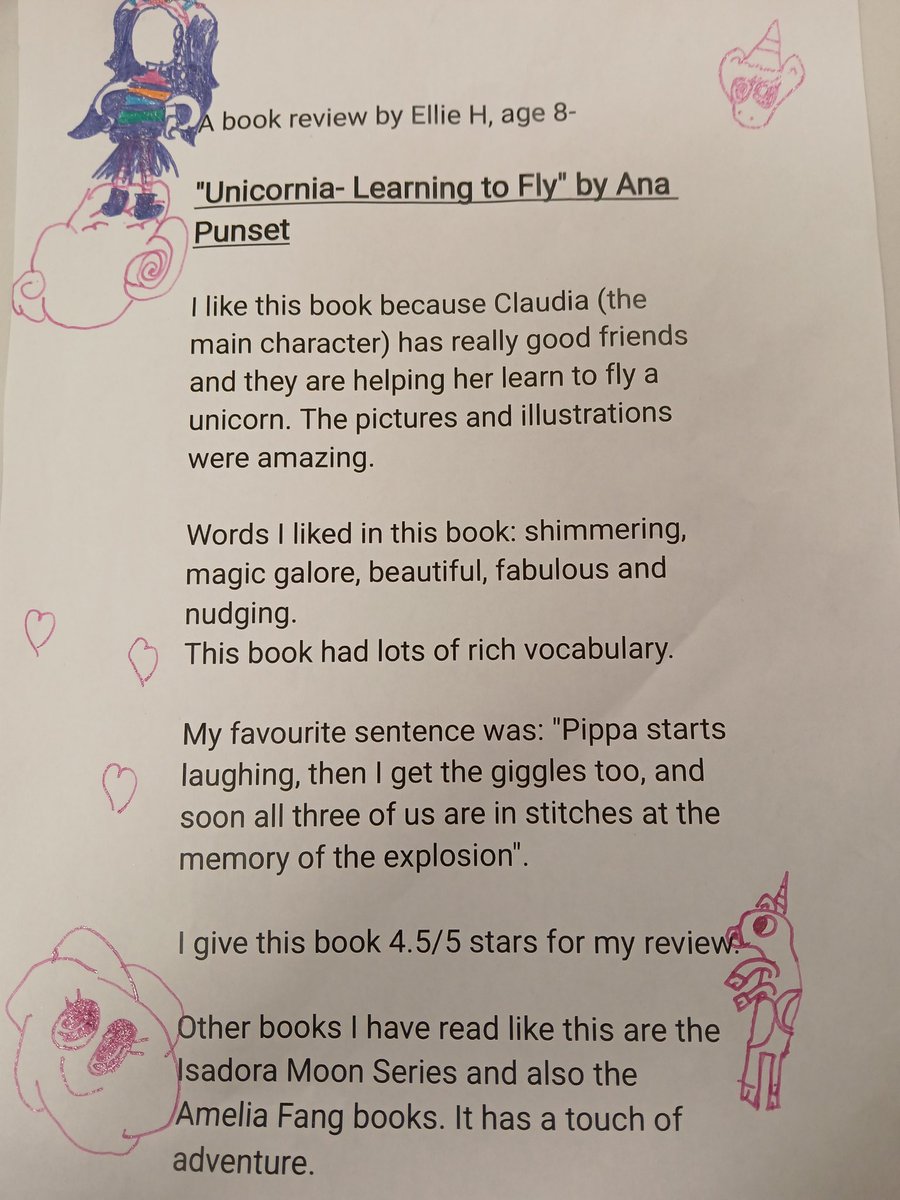 A book review by Ellie H, age 8-
"Unicornia- Learning to Fly" by Ana
Punset
I like this book because Claudia (the
main character) has really good friends
and they are helping her learn to fly a
unicorn. The pictures and illustrations
were amazing.
Words I liked in this book: shimmering,
magic galore, beautiful, fabulous and
nudging.
This book had lots of rich vocabulary.
My favourite sentence was: "Pippa starts
laughing, then I get the giggles too, and
soon all three of us are in stitches at the
memory of the explosion".
I give this book 4.5/5 stars for my review.
Other books I have read like this are the
Isadora Moon Series and also the
Amelia Fang books. It has a touch of
adventure.